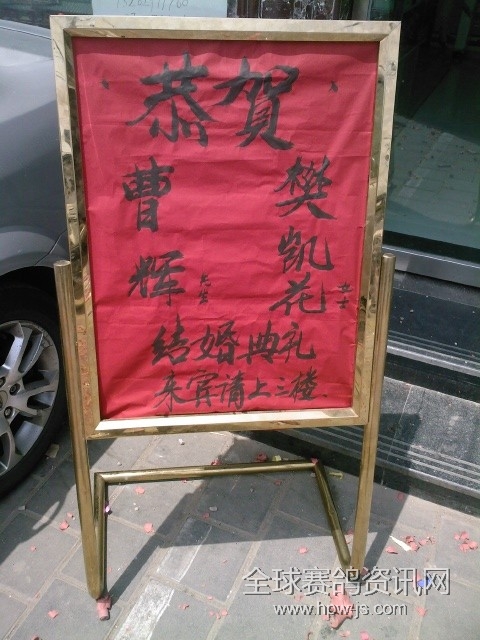 恭贺
曹辉 先生
樊凯花 女士
结婚典礼
来宾请上三楼
全球赛鸽资讯网
www.hpwjs.com